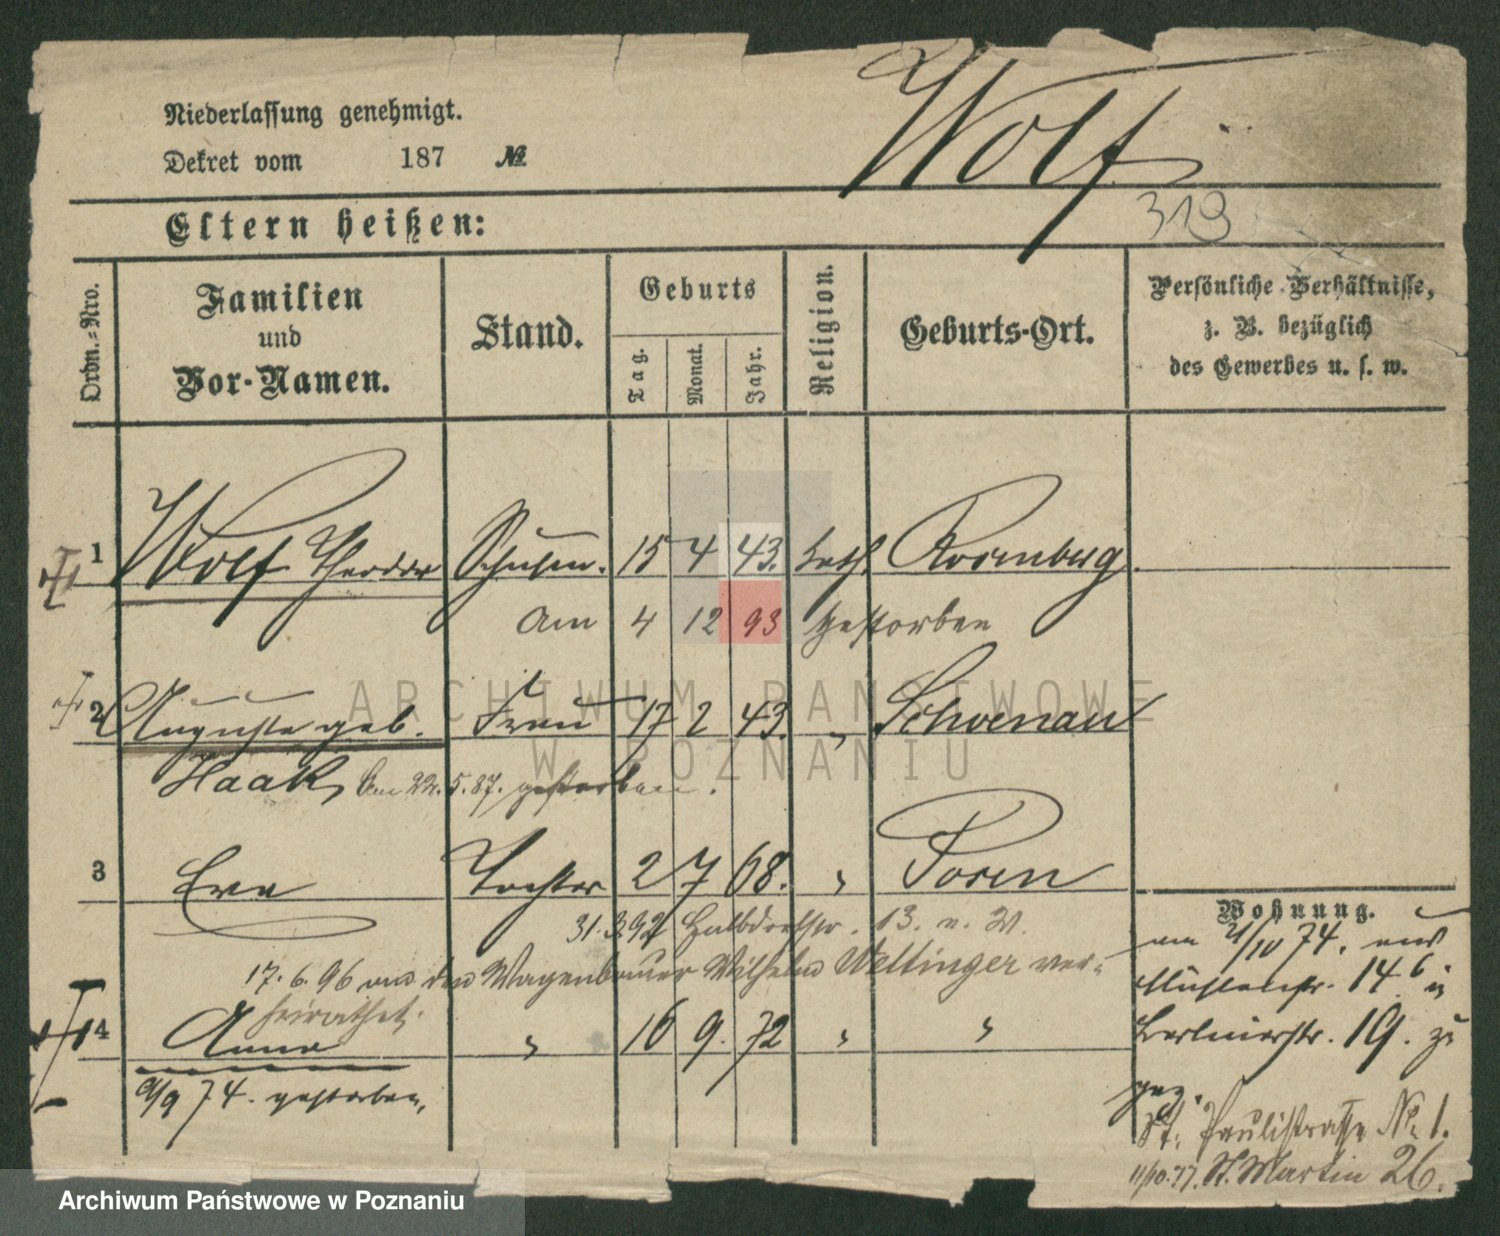 Wolf
Niederlassung genehmigt.
Dekret vom 187 №
319
Eltern heißen:
Ordn.-Nro. Familien und Vor-Namen. Stand. Geburts Tag. Monat. Jahr. Religion. Geburts-Ort. Persönliche Verhältnisse, z. B. bezüglich des Gewerbes u. s. w.
1 Wolf Theodor 15 4 43. kath. Rosenberg
am 4 12 93 gestorben
2 Auguste geb. Frau 17 2 43. " Schoenau
Haak, am 22.5.87. gestorben.
3 Eva Tochter 2 7 68. " Posen
31.3.92 Halbdorfstr. 13.
17.6.96 an den Wagenbauer Wilhelm Weltinger ver-
heirathet.
4 Anna " 16 9. 72 " "
9/9 74. gestorben,
Wohnung.
am 2/10 74. aus
Mühlenstr. 14 b in
Berlinerstr. 19. zu
gez.
St. Paulistrasse No. 1.
11/10.77. St. Martin 26.
ARCHIWUM PAŃSTWOWE
W POZNANIU
Archiwum Państwowe w Poznaniu